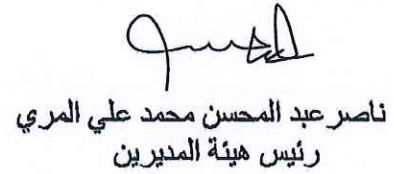 ناصر عبد المحسن محمد علي المري
رئيس هيئة المديرين